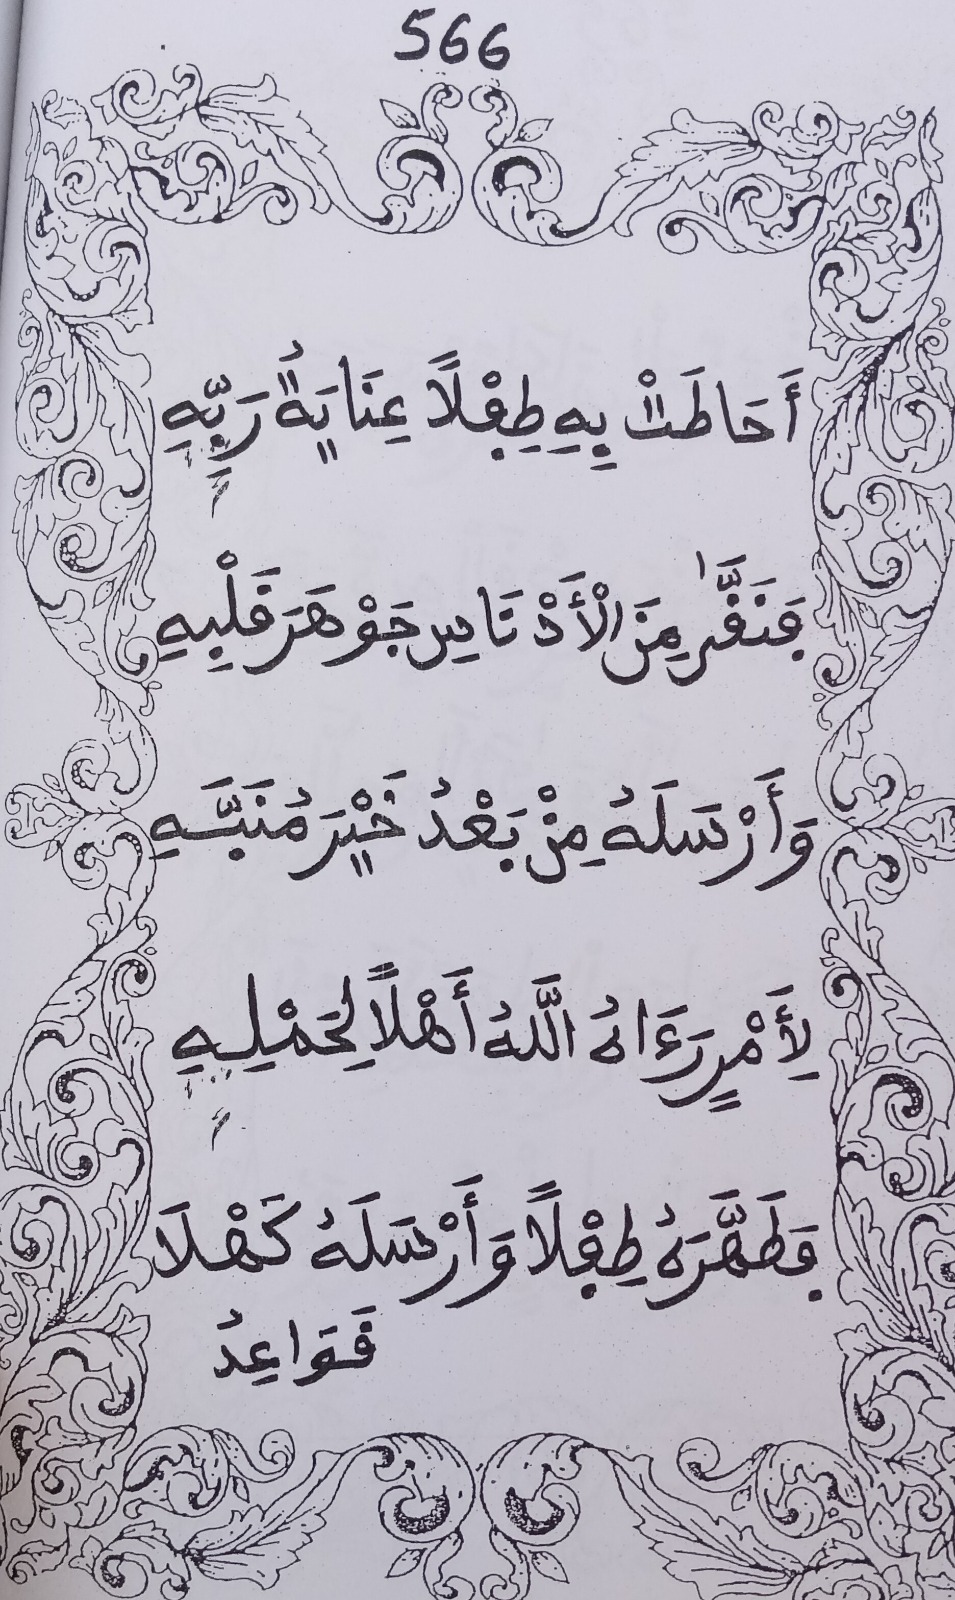 566
أَحَاطَتْ بِهِ طِفْلًا عِنَايَةُ رَبِّهِ
فَنَقَّىٰ مِنَ الْأَدْنَاسِ جَوْهَرَ قَلْبِهِ
وَأَرْسَلَهُ مِنْ بَعْدُ خَيْرَ مُنَبَّهِ
لِأَمْرٍ رَءَاهُ اللَّهُ أَهْلًا لِحَمْلِهِ
فَطَهَّرَهُ طِفْلًا وَأَرْسَلَهُ كَهْلَا
قَوَاعِدُ